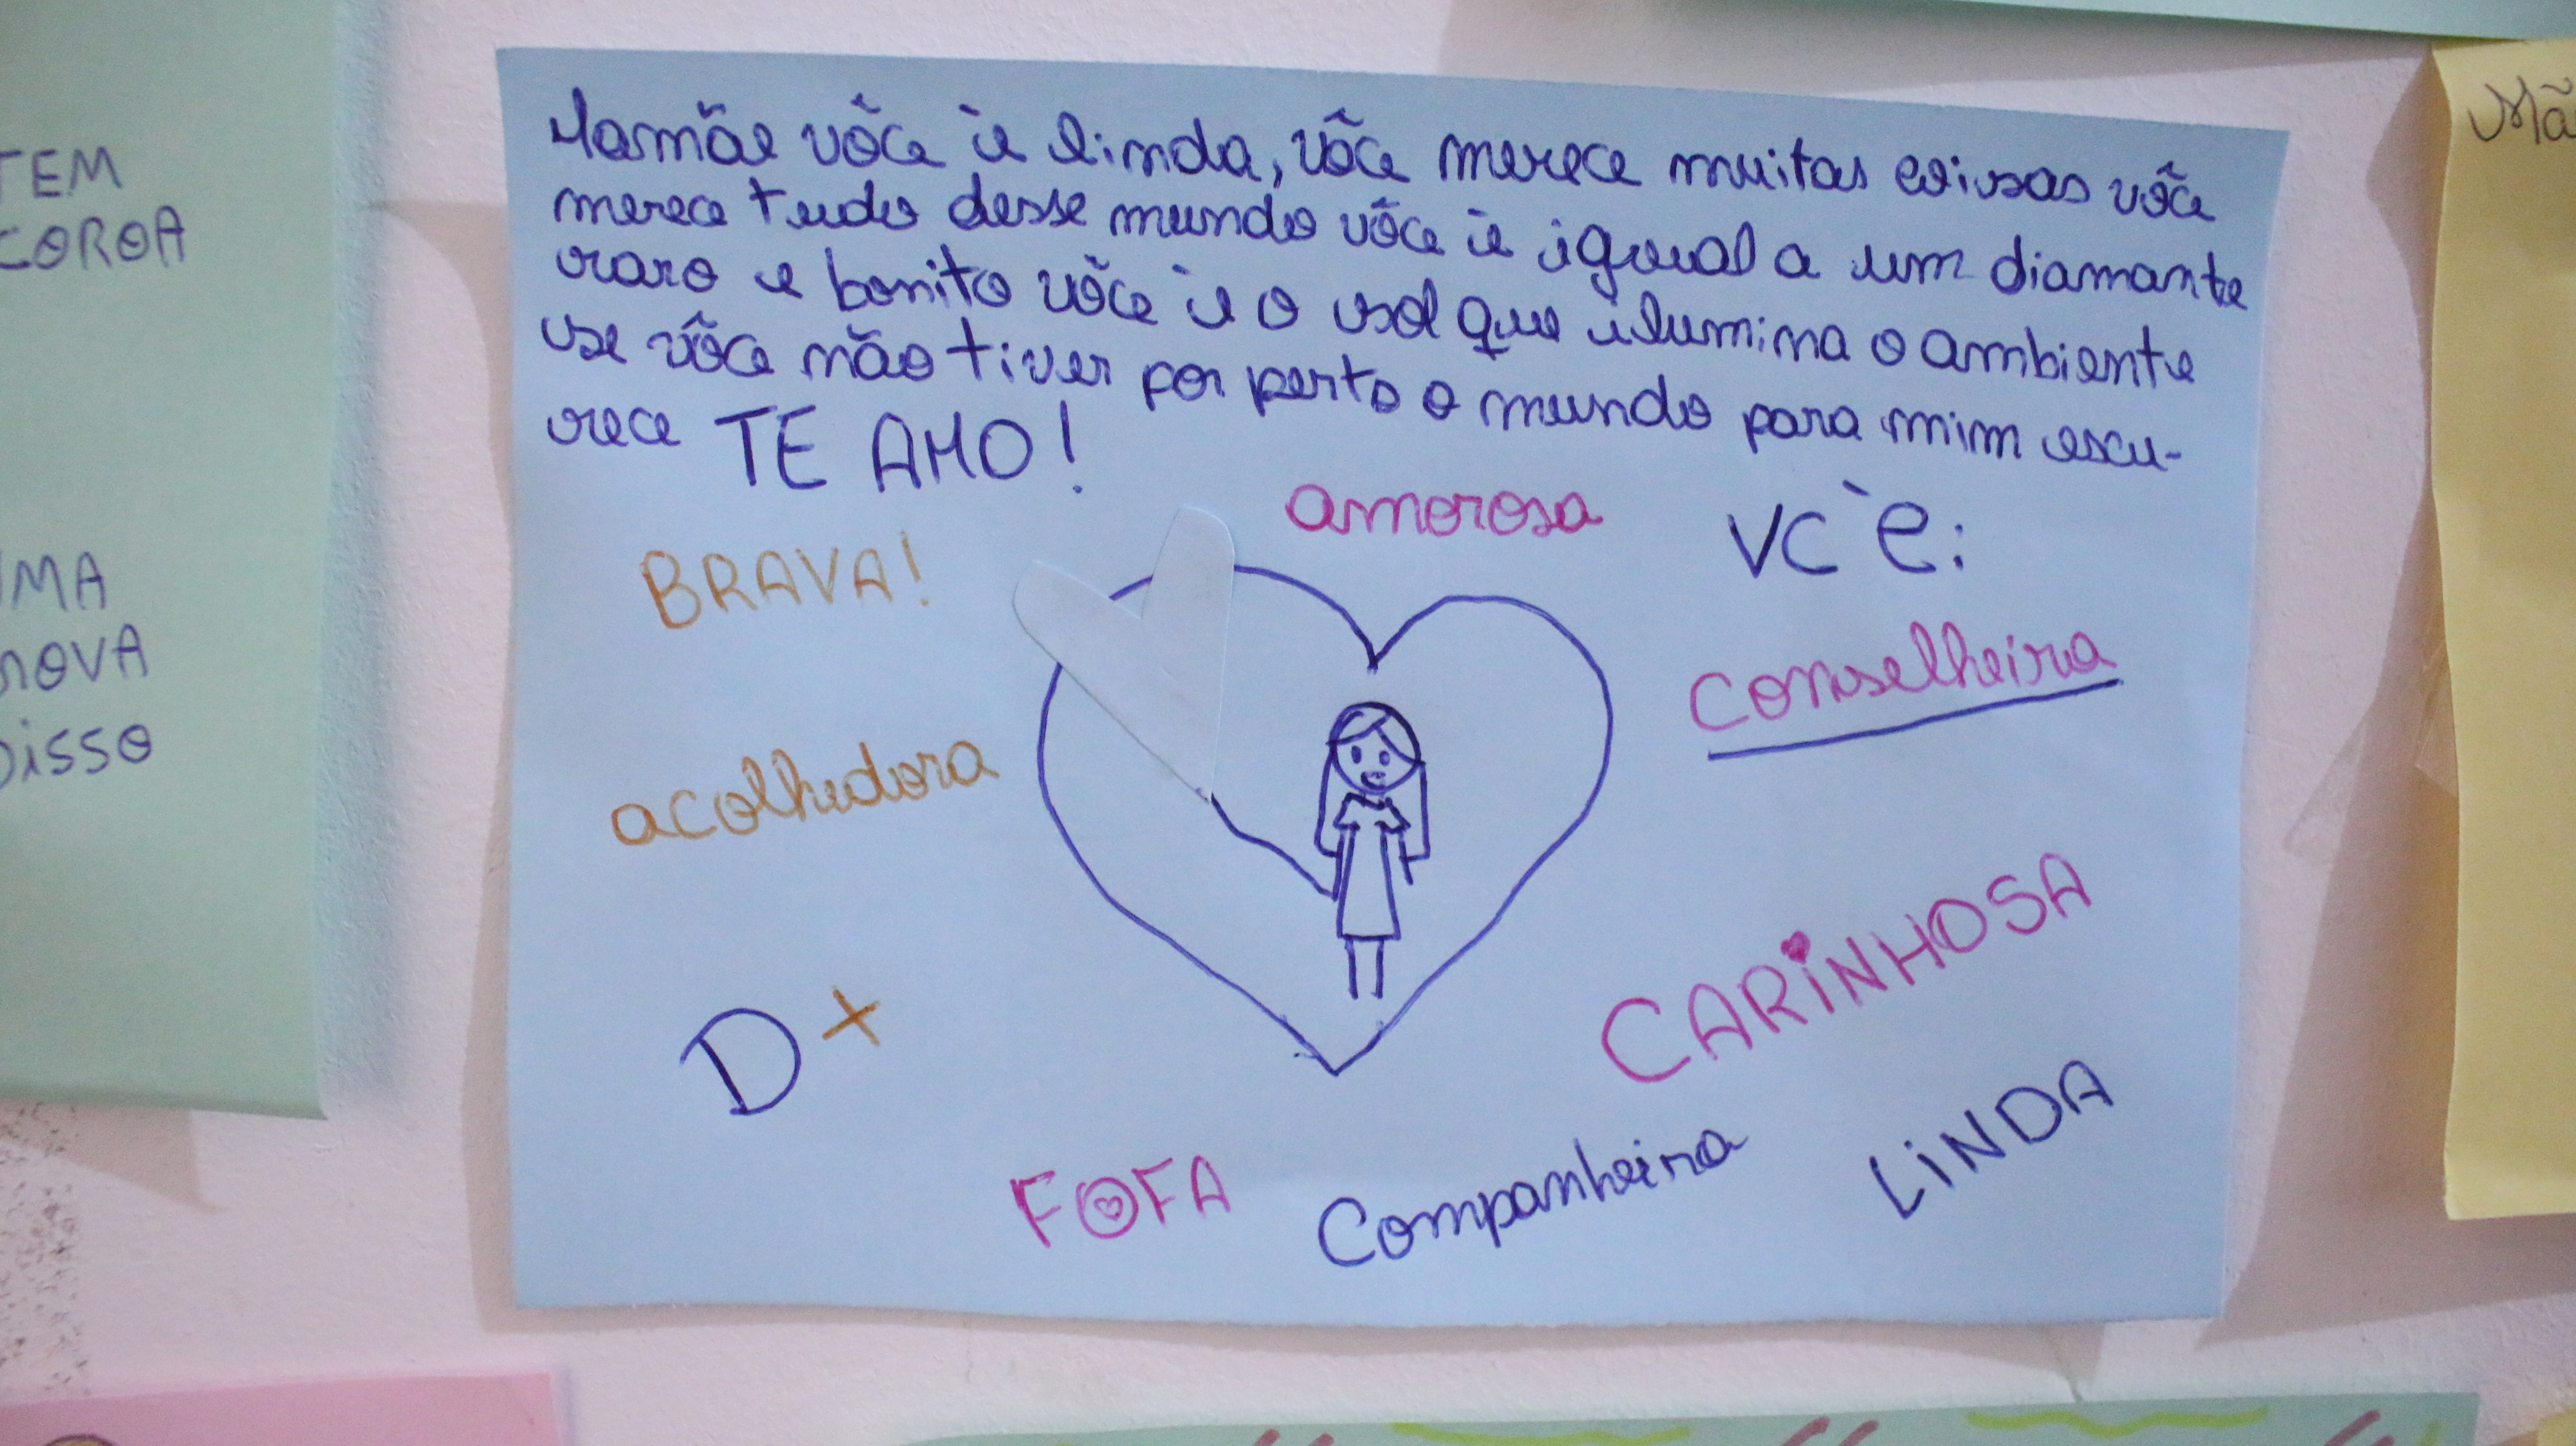 Mamãe vôce è linda, vôce merece muitas coisas vôce
merece tudo desse mundo vôce è igual a um diamante
raro e bonito vôce è o sol que ilumina o ambiente
se vôce não tiver por perto o mundo para mim escu-
rece TE AMO!
amorosa
VC è:
BRAVA!
conselheira
acolhedora
CARINHOSA
D+
LINDA
FOFA
Companheira
TEM
COROA
UMA
NOVA
DISSO
Mã